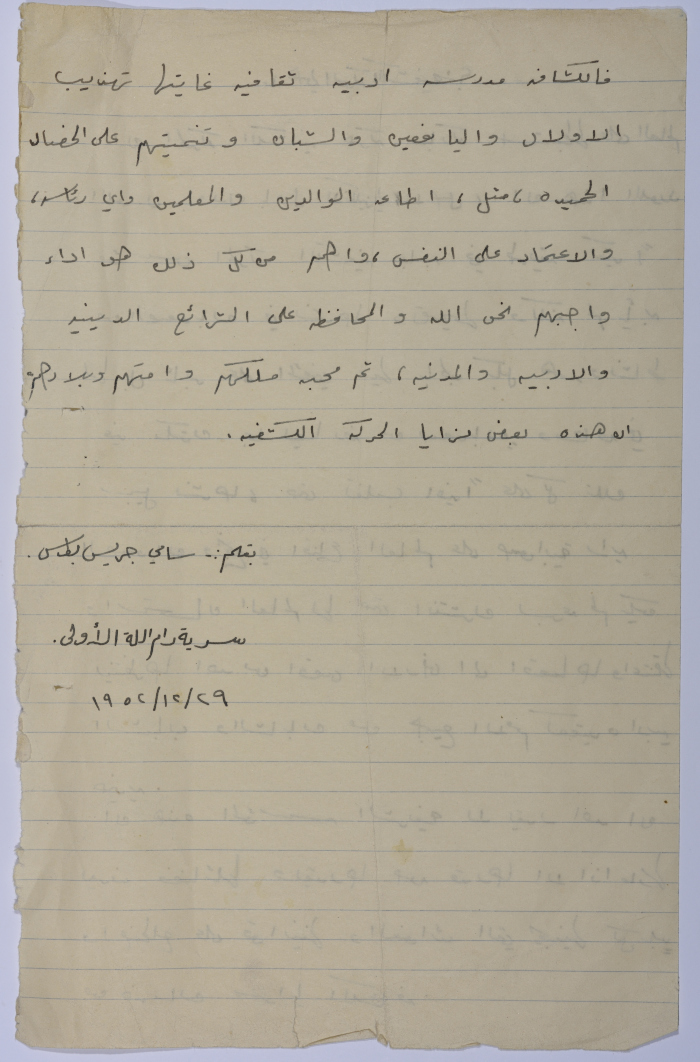 فالكشافه مدرسه ادبيه ثقافيه غايتها تهذيب
الاولاد واليافعين والشبان وتنميتهم على الخصال
الحميده ، مثل ، اطاعه الوالدين والمعلمين واي رئاسه ،
والاعتماد على النفس ، واهم من كل ذلك هو اداء
واجبهم نحو الله والمحافظه على الشرائع الدينيه
والادبيه والمدنيه ، ثم محبه ملكهم وامتهم وبلادهم
ان هذه بعض مزايا الحركه الكشفيه .
بقلم :- سامي جريس بطرس .
سرية رام الله الأولى .
١٩٥٢/١٢/٢٩